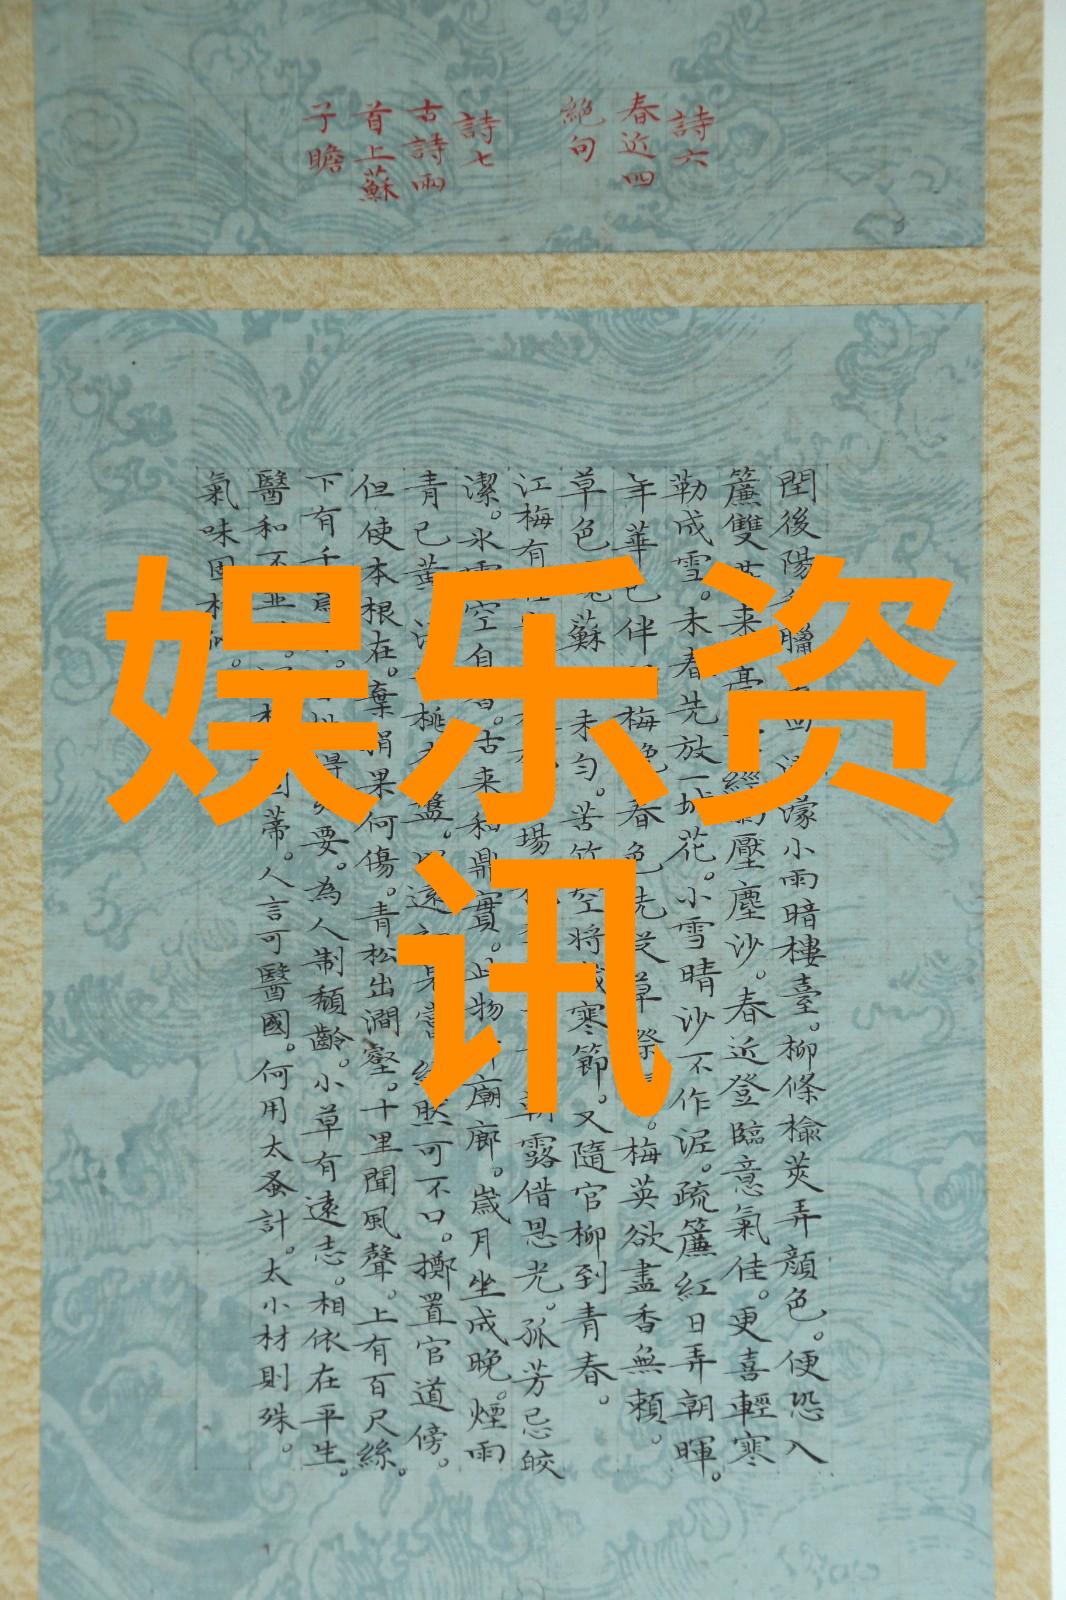 詩六
春近四
絶句
詩七
古詩兩
首上蘇
子瞻
閏後陽臘濛小雨暗樓臺。柳條榆莢弄顏色。便恐入
簾雙来經壓塵沙。春近登臨意氣佳。更喜輕寒
勒成雪。未春先放一城花。小雪晴沙不作泥。疏簾紅日弄朝暉。
年華已伴梅晚春色先從草際。梅英欲盡香無頼。
草色蘇未匀。苦竹空將歲寒節。又隨官柳到青春。
江梅有場朝露借恩光。孤芳忌皎
潔。氷雪空自香。古来和鼎實。此物廟廊。歲月坐成晚。煙雨
青已黄桃盤。以遠初見嘗終然可不口。擲置官道傍。
但使本根在。棄捐果何傷。青松出澗壑。十里聞風聲。上有百尺絲。
下有千得要。為人制頽齡。小草有遠志。相依在平生。
醫和不並根固蒂。人言可醫國。何用太蚤計。大小材則殊。
氣味固相似。
娱乐资
讯